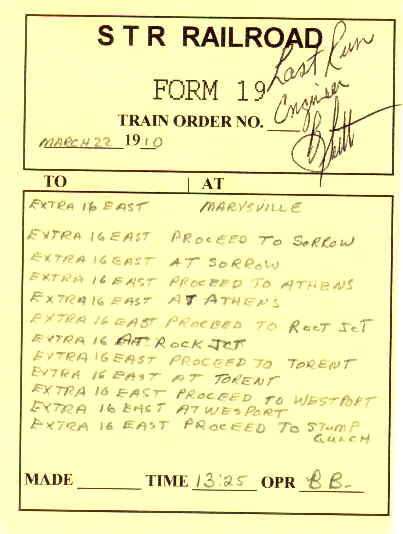 STR RAILROAD
Last Run
FORM 19
Engineer
TRAIN ORDER NO.
MARCH 22 1910
TO | AT
EXTRA 16 EAST MARYSVILLE
EXTRA 16 EAST PROCEED TO SORROW
EXTRA 16 EAST AT SORROW
EXTRA 16 EAST PROCEED TO ATHENS
EXTRA 16 EAST AT ATHENS
EXTRA 16 EAST PROCEED TO ROCT JCT
EXTRA 16 AT ROCK JCT
EXTRA 16 EAST PROCEED TO TORENT
EXTRA 16 EAST AT TORENT
EXTRA 16 EAST PROCEED TO WESTPORT
EXTRA 16 EAST AT WESPORT
EXTRA 16 EAST PROCEED TO STUMP
GULCH
MADE TIME 13:25 OPR BB-